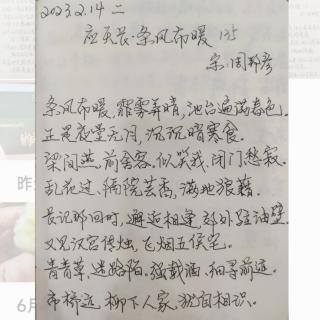 2023.2.14 二
应天长·条风布暖 135
宋:周邦彦
条风布暖,霏雾弄晴,池台遍满春色。
正是夜堂无月,沉沉暗寒食。
梁间燕,前舍客,似笑我、闭门愁寂。
乱花过、隔院芸香,满地狼藉。
长记那回时,邂逅相逢,郊外驻油壁。
又见汉宫传烛,飞烟五侯宅。
青青草,迷路陌。强载酒、细寻前迹。
市桥远,柳下人家,犹自相识。
昨
6月